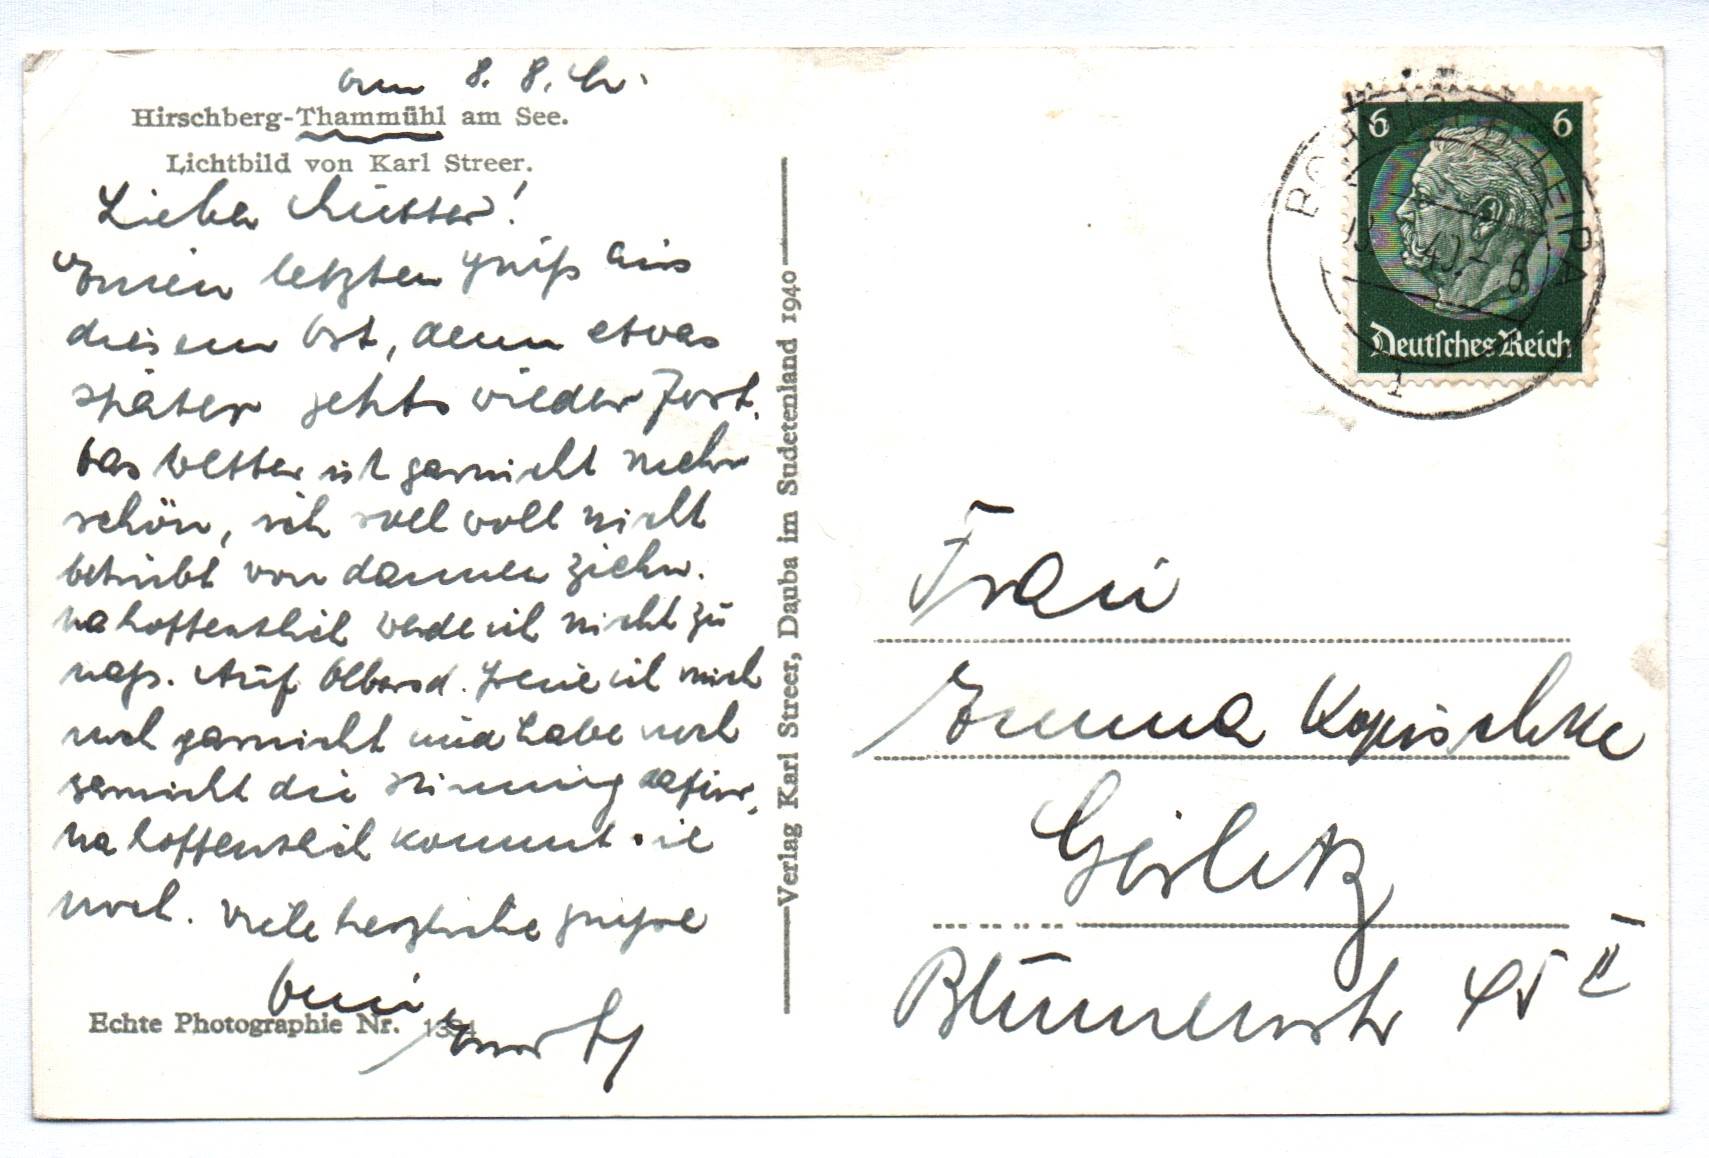 am 8. 8.
Hirschberg-Thammühl am See.
Lichtbild von Karl Streer.
Liebe Mutter!
Einen letzten Gruß aus
diesem Ort, denn etwas
später gehts wieder fort.
Das Wetter ist garnicht mehr
schön, ich soll woll nicht
betrübt von dannen ziehn.
Na hoffentlich werde ich nicht zu
naß. Auf Olbersd. freue ich mich
noch garnicht und habe noch
garnicht die Stimmung dafür,
na hoffentlich kommt sie
noch. Viele herzliche Grüße
Echte Photographie Nr.
Verlag Karl Streer, Dauba im Sudetenland 1940
6 6
Deutsches Reich
LEIPA
Frau
Emma Kopischke
Görlitz
Blumenstr 45 II